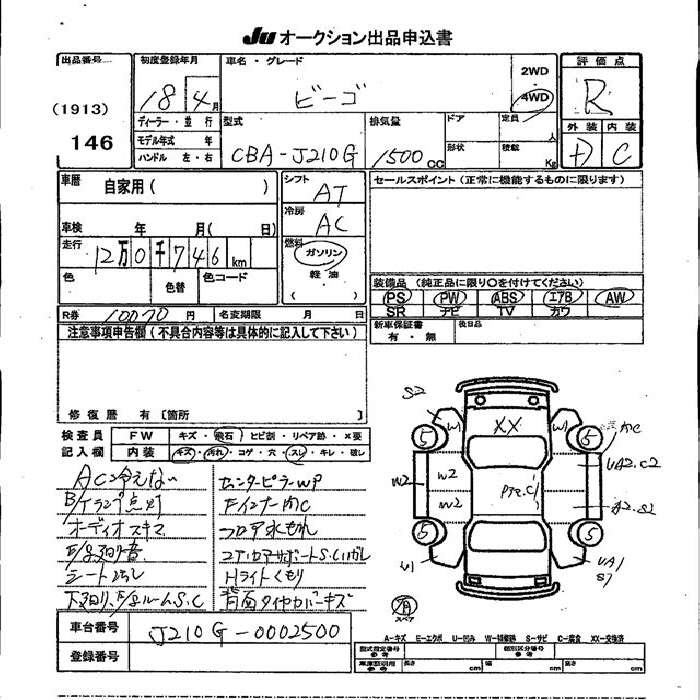 JU オークション出品申込書
出品番号 (1913) 146
初度登録年月 18年 4月
ディーラー・並行
モデル年式 年
ハンドル 左・右
車名・グレード ビーゴ
2WD・4WD
型式 CBA-J210G
排気量 1500 CC
ドア
形状
定員 人
積載 Kg
評価点 R
外装 内装
D C
車歴 自家用( )
車検 年 月(日)
走行 12万0千746km
色 色替 色コード
シフト AT
冷房 AC
燃料 ガソリン
軽油
( )
セールスポイント(正常に機能するものに限ります)
装備品(純正品に限り○を付けてください)
PS PW ABS エアB AW
SR ナビ TV カワ
新車保証書 有・無
後日品
R券 10070円 名変期限 月 日
注意事項申告欄(不具合内容等は具体的に記入して下さい)
修復歴 有[箇所 ]
検査員記入欄
FW キズ・飛石・ヒビ割・リペア跡・×要
内装 キズ・汚れ・コゲ・穴・スレ・キレ・破し
AC冷えない
B/Kランプ点灯
オーディオスキズ
センターピラーWP
Fインナー凹C
フロア水もれ
コアサポートS.C
Hライトくもり
背面タイヤカバーキズ
S2
W1 XX W1
5 5
W2 W2 W2
PTZ.C
UA2.C2
A2.S2
5 5
U1
UA1
S1
スペア
車台番号 J210G-0002500
登録番号
A-キズ E-エクボ U-凹み W-補修跡 S-サビ C-腐食 XX-交換済
型式指定番号 参考
類別区分番号 参考
車庫証明用 参考 長さ cm 幅 cm 高さ cm